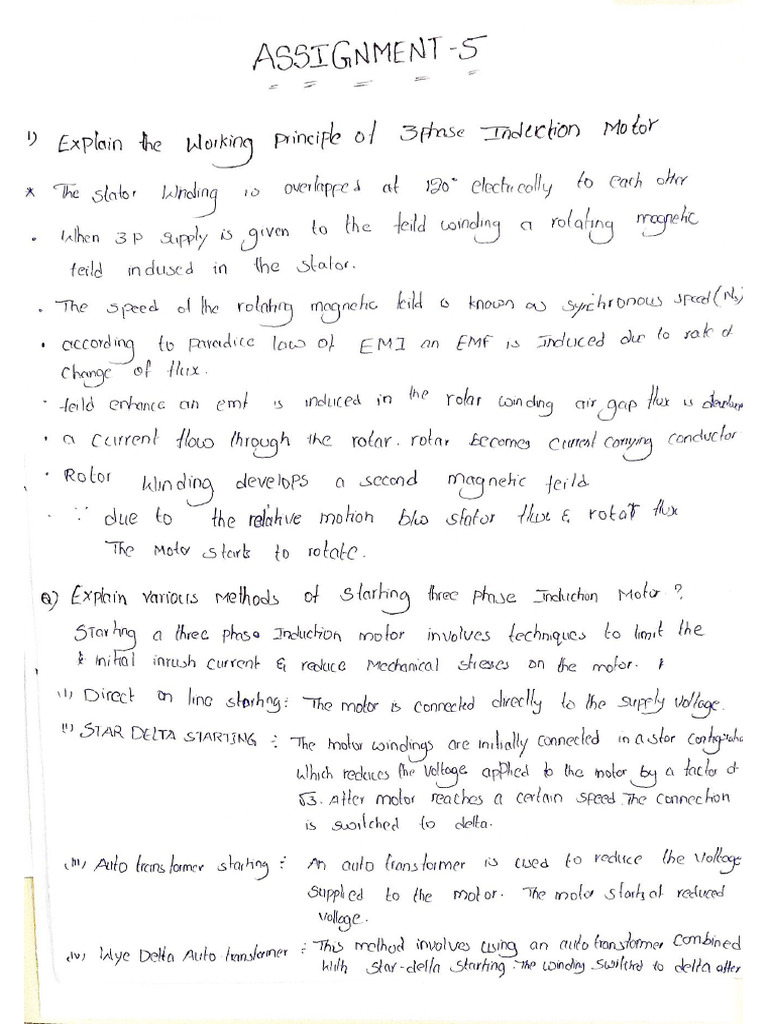 ASSIGNMENT-5
1) Explain the Working principle of 3phase Induction Motor
* The stator Winding is overlapped at 120° electrically to each other
. When 3 p supply is given to the feild winding a rotating magnetic
feild indused in the stator.
. The speed of the rotating magnetic feild is known as synchronous speed (Ns)
. according to paradice law of EMI an EMF is Induced due to rate of
change of flux.
. feild enhance an emf is induced in the rotar winding air gap flux is
. a current flow through the rotar. rotar becomes current carrying conductor
. Rotor Winding develops a second magnetic feild
. ∵ due to the relative motion b/w stator flux & rotar flux
The Motor starts to rotate.
2) Explain various Methods of starting three phase Induction Motor?
Starting a three phase Induction motor involves techniques to limit the
initial inrush current & reduce Mechanical stresses on the motor.
(i) Direct on line starting: The motor is connected directly to the supply voltage.
(ii) STAR DELTA STARTING : The motor windings are initially connected in a star configuration
which reduces the voltage applied to the motor by a factor of
√3. After motor reaches a certain speed The connection
is switched to delta.
(iii) Auto transformer starting : An auto transformer is used to reduce the voltage
supplied to the motor. The motor starts at reduced
voltage.
(iv) Wye Delta Auto transformer : This method involves using an autotransformer combined
with star-delta starting. The winding switched to delta after